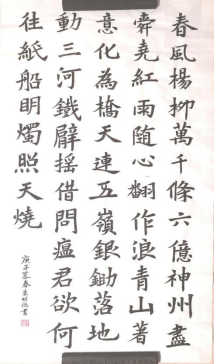 春風楊柳萬千條六億神州盡
舜堯紅雨随心翻作浪青山著
意化為橋天連五嶺銀鋤落地
動三河鐵臂摇借問瘟君欲何
往紙船明燭照天燒
庚子暮春書